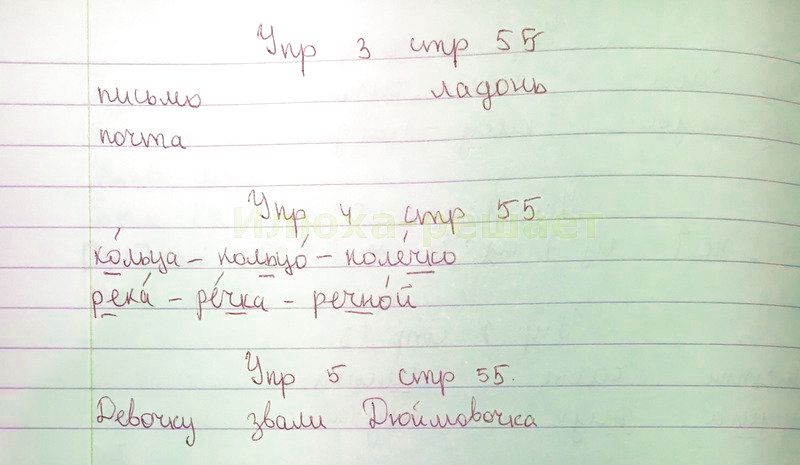 Упр 3 стр 55
письмо ладонь
почта
Упр 4 стр 55
Илюха-решает
ко́льца - кольцо́ - коле́чко
река́ - ре́чка - речно́й
Упр 5 стр 55.
Девочку звали Дюймовочка